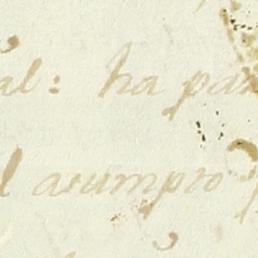 al: ha pa
l asumpro